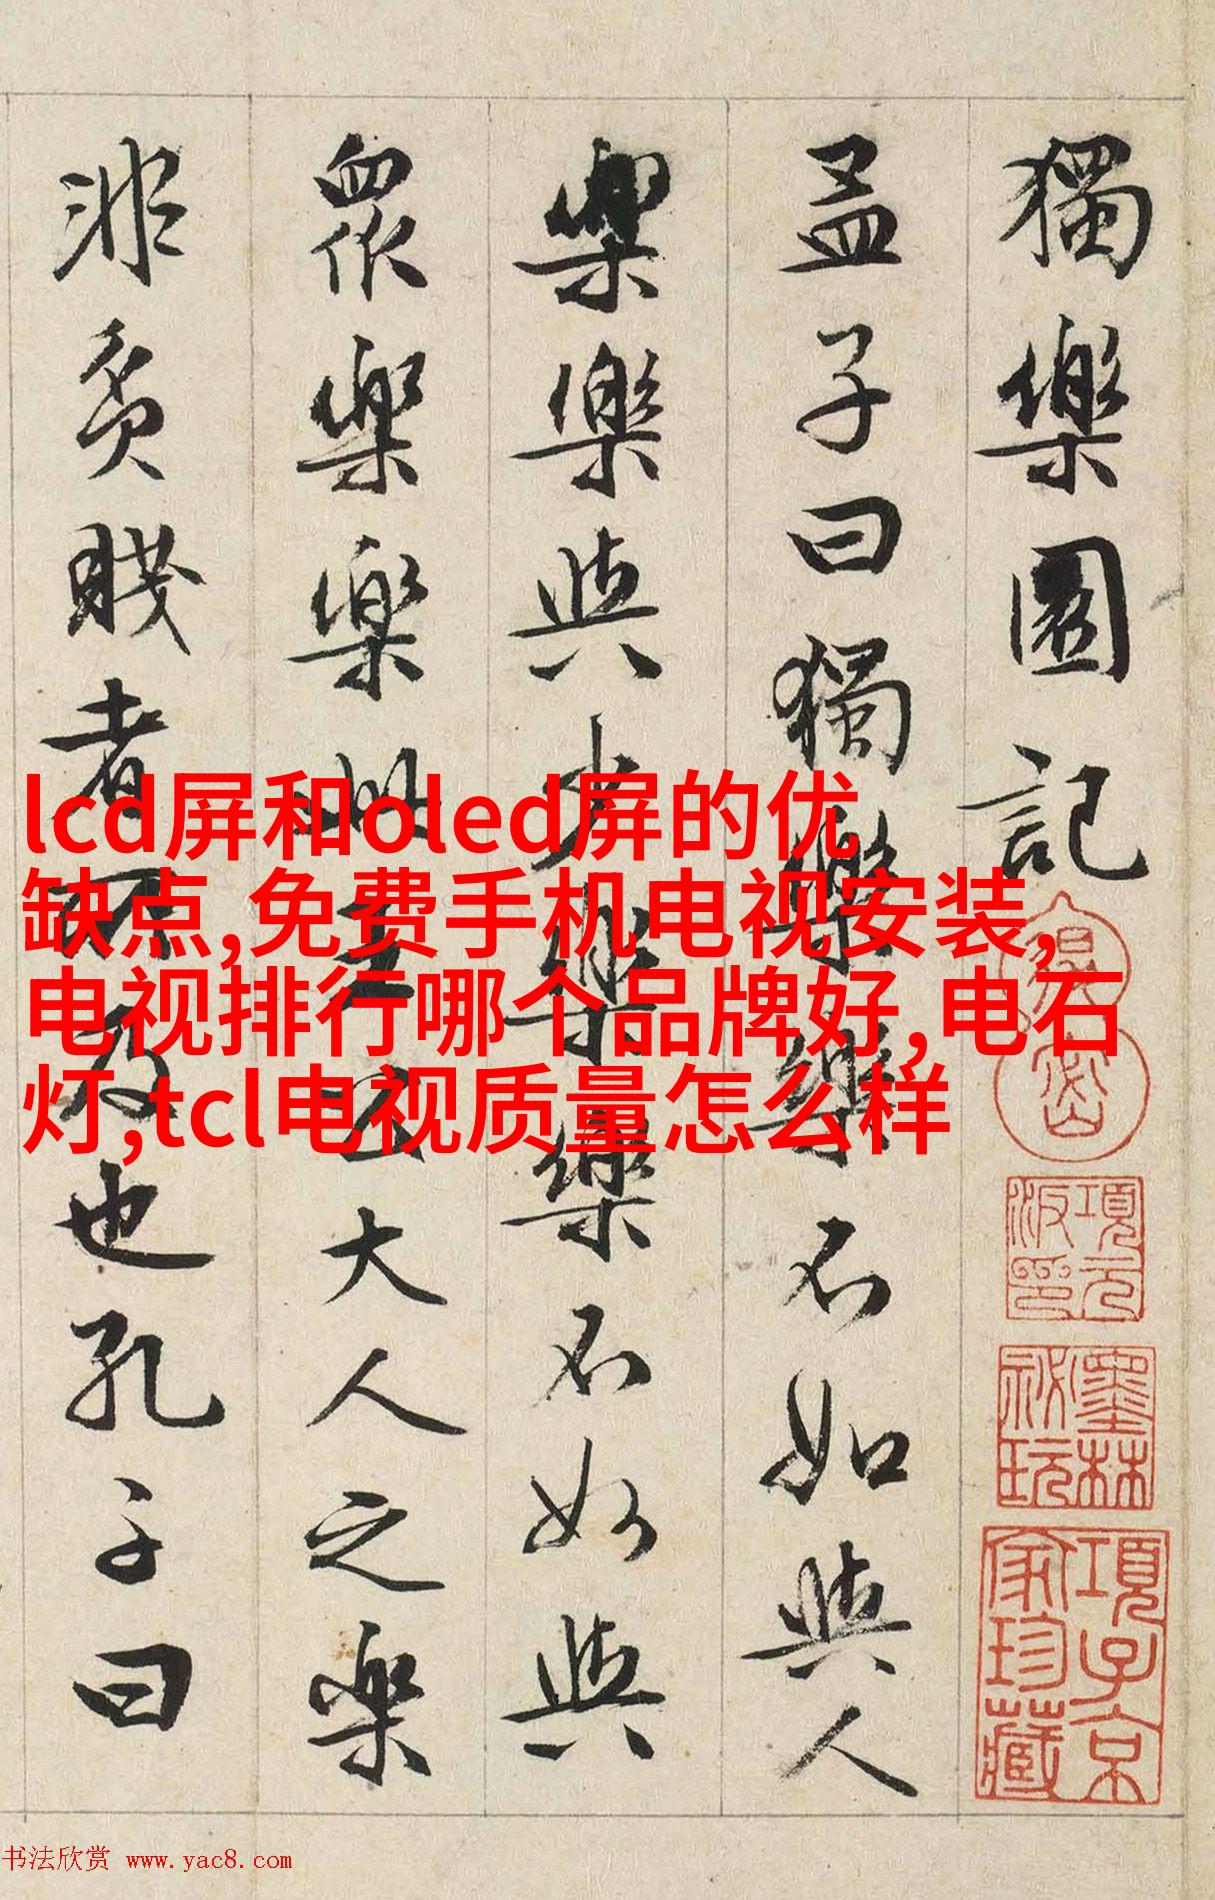 獨樂園記
孟子曰獨樂樂不如與人
樂樂與少樂樂不如與
眾樂樂此王公大人之樂
非貧賤者所及也孔子曰
lcd屏和oled屏的优
缺点,免费手机电视安装,
电视排行哪个品牌好,电石
灯,tcl电视质量怎么样
項元汴印
墨林祕玩
項子京家珍藏
书法欣赏 www.yac8.com